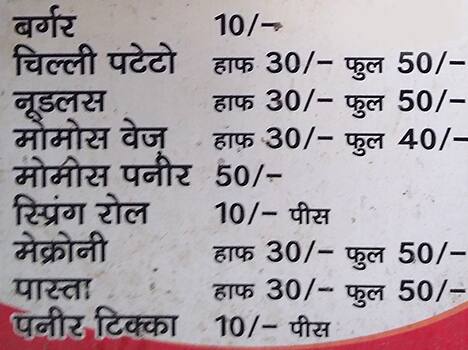 बर्गर 10/-
चिल्ली पटेटो हाफ 30/- फुल 50/-
नूडलस हाफ 30/- फुल 50/-
मोमोस वेज़ हाफ 30/- फुल 40/-
मोमोस पनीर 50/-
स्प्रिंग रोल 10/- पीस
मेक्रोनी हाफ 30/- फुल 50/-
पास्ता हाफ 30/- फुल 50/-
पनीर टिक्का 10/- पीस